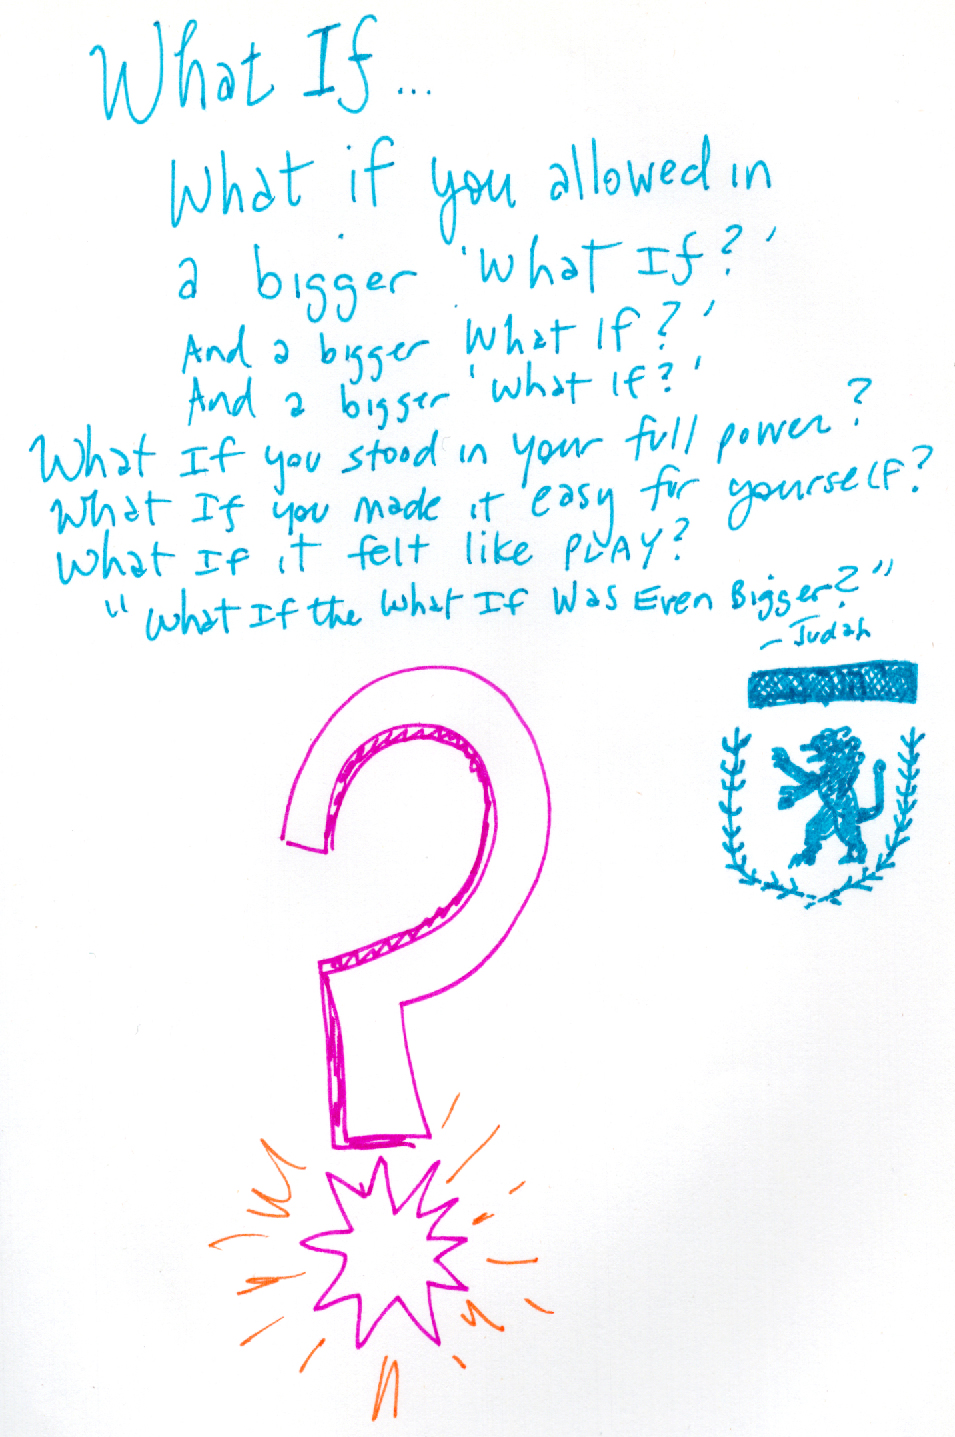 What If...
What if you allowed in
a bigger 'What If?'
And a bigger 'What If?'
And a bigger 'What If?'
What If you stood in your full power?
What If you made it easy for yourself?
What If it felt like PLAY?
"What If the What If Was Even Bigger?"
- Judah